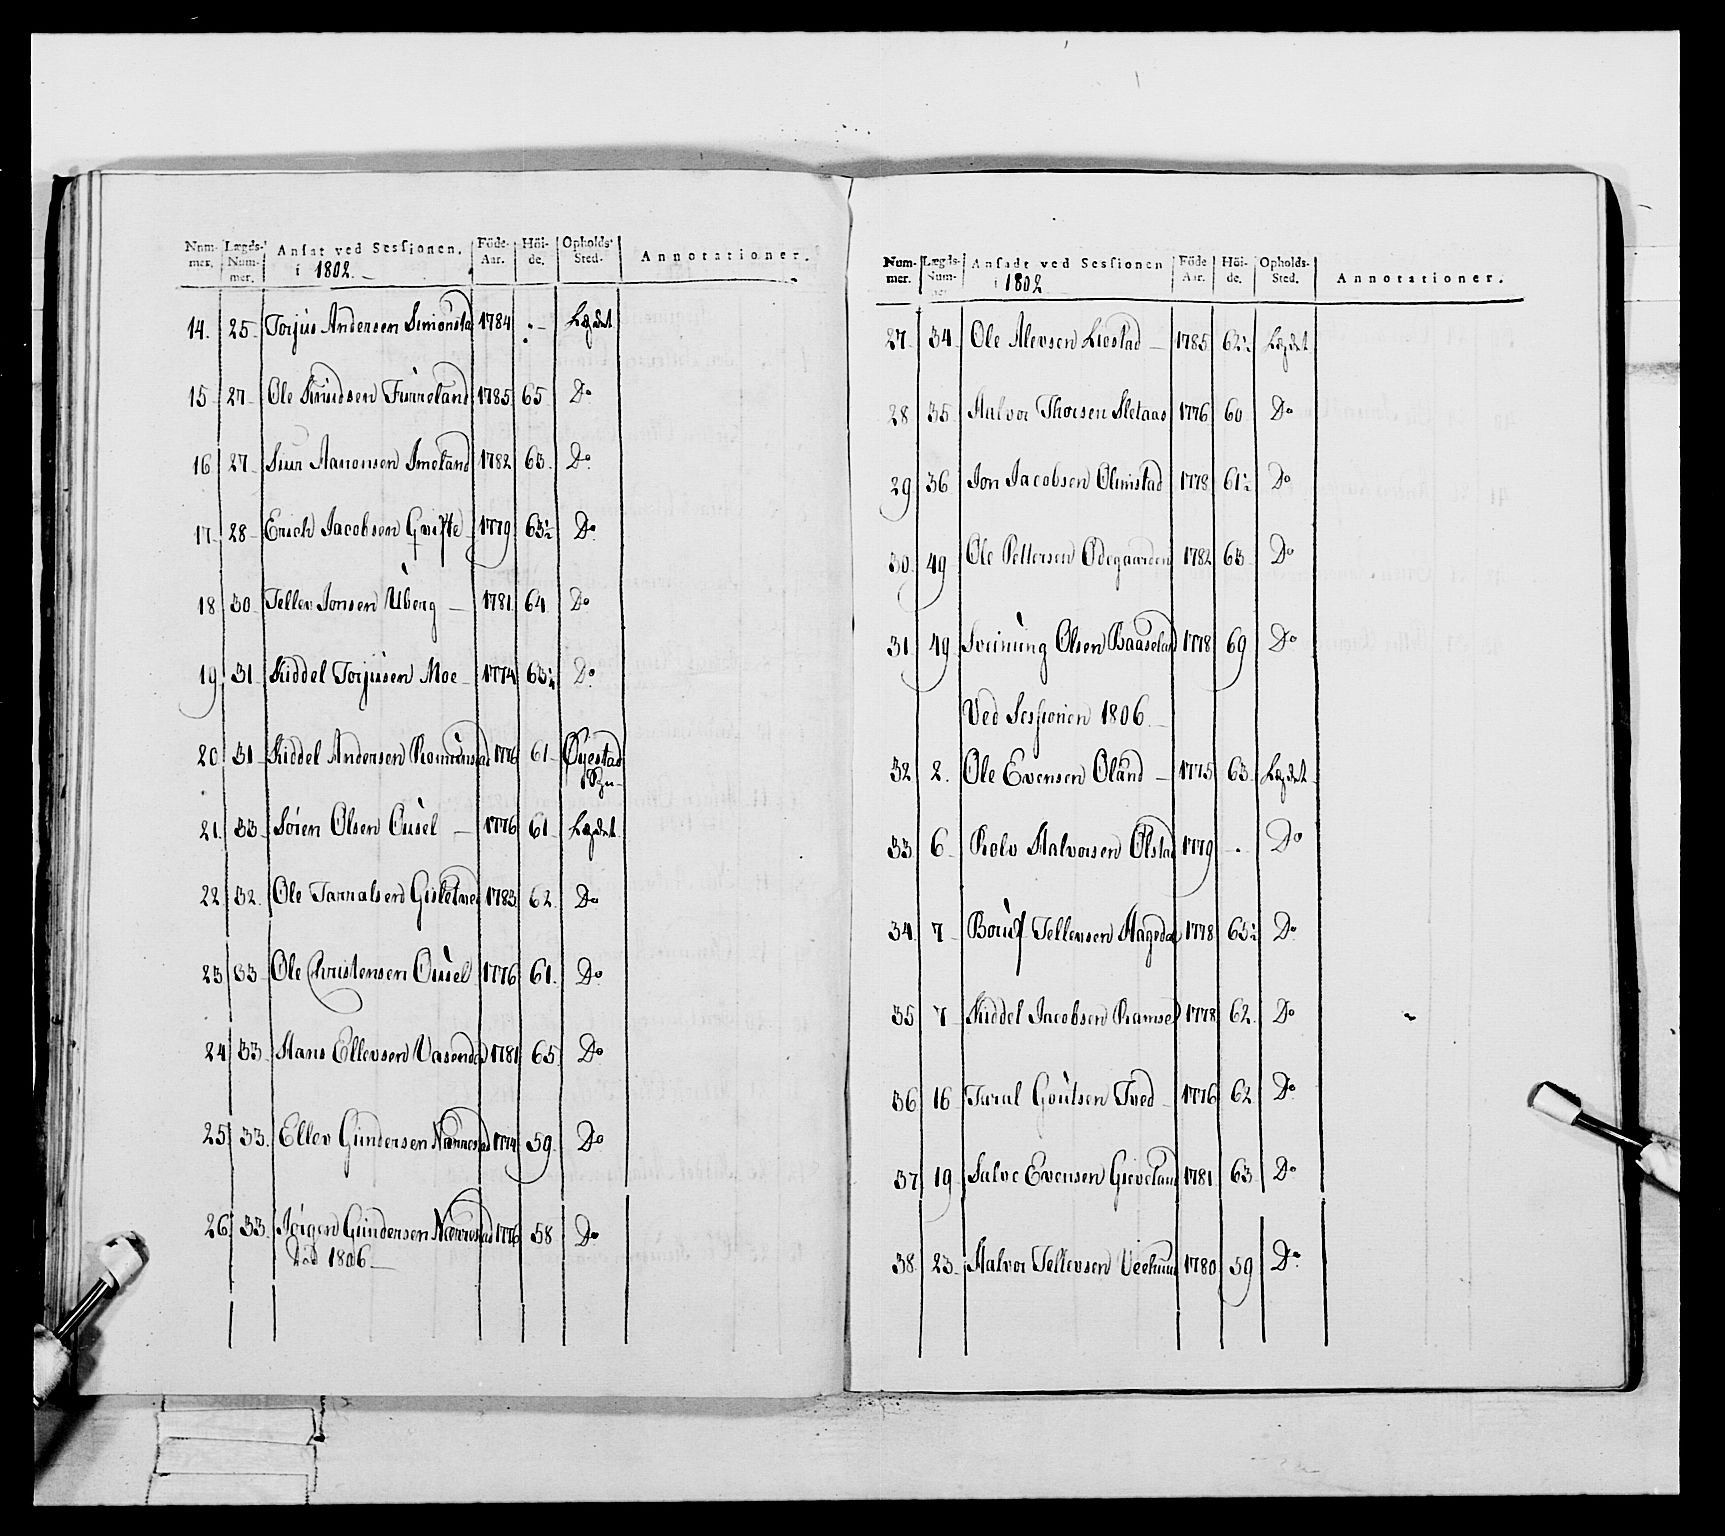 Num- mer. Lægds- Num- mer. Ansat ved Sessionen. Föde- Aar. Höi- de. Opholds- Sted. Annotationer.
i 1802.
14. 25 Torjus Andersen Simonsta 1784 . Lægdet
15 27 Ole Knudsen Furreland 1785 65 Do
16 27 Siur Aanonsen Smeland 1782 63. Do
17 28 Erich Jacobsen 1779 63½ Do
18 30 Tellev Jonsen Uberg 1781 64 Do
19 31 Kiddel Torjusen Moe 1774 63¼ Do
20 31 Kiddel Andersen 1776 61 Øyestad
21. 33 Sören Olsen Ousel 1776 61 Lægdet
22 32. Ole Tarralsen 1783 62. Do
23 33 Ole Christensen Ousel 1776 61. Do
24 33 Hans Ellevsen Vasend 1781 65 Do
25 33. Ellev Gundersen 1774 59. Do
26. 33. Jörgen Gundersen 1776 58 Do
Död 1806
Num- mer. Lægds- Num- mer. Ansadt ved Sessionen Föde Aar. Höi- de. Opholds- Sted. Annotationer.
i 1802
27 34 Ole Alevsen Liestad 1785 62½ Lægdet
28 35 Halvor Thorsen Sletaas 1776 60 Do
29 36 Jon Jacobsen Olimstad 1778 61½ Do
30. 49 Ole Pettersen Ødegaarden 1782 63 Do
31. 49 Svennung Olsen Baaseland 1778 69 Do
Ved Sessionen 1806.
32 2. Ole Evensen Oland 1775 63 Lægdet
33 6 Rolv Halvorsen Ølsta 1779 . Do
34. 7 Tellevsen 1778 63½ Do
35 7 Kiddel Jacobsen Ramse 1778 62. Do
36 16 Taral Goutsen Tved 1776 62 Do
37 19 Salve Evensen Grevelan 1781. 63 Do
38. 23 Halvor Tellevsen 1780 59 Do